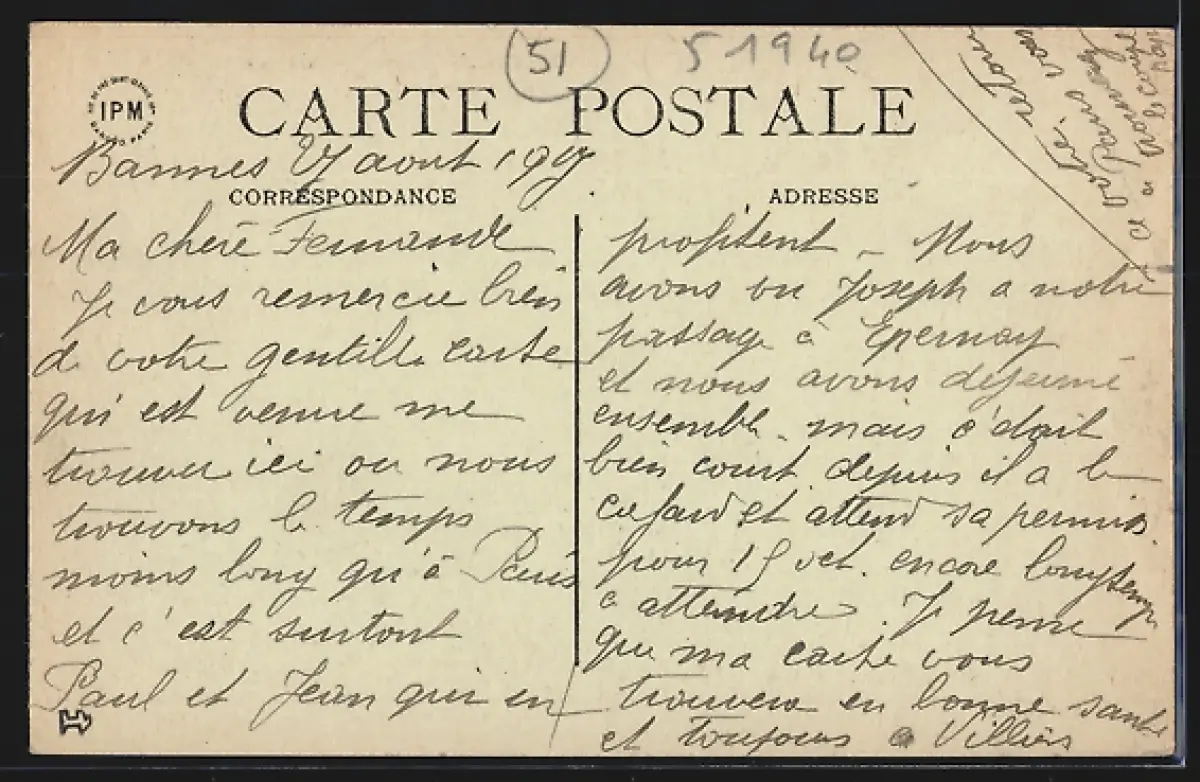 (51)
51940
IPM
CARTE POSTALE
Bannes 27 aout 1917
CORRESPONDANCE
ADRESSE
Ma chère Fernande
Je vous remercie bien
de votre gentille carte
qui est venue me
trouver ici ou nous
trouvons le temps
moins long qu'à Paris
et c'est surtout
Paul et Jean qui en
profitent – Nous
avons vu Joseph a notre
passage à Épernay
et nous avons dejeuné
ensemble. mais c'était
bien court. depuis il a le
cafard et attend sa permis.
pour 15 oct. encore longtemps
a attendre. Je pense
que ma carte vous
trouvera en bonne santé
et toujours a Villiers
votre retour
a Paris vous